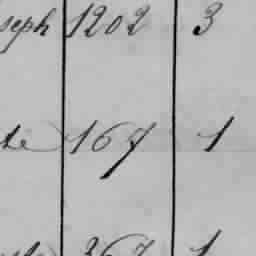 seph 1202 3
te 167 1
367 1